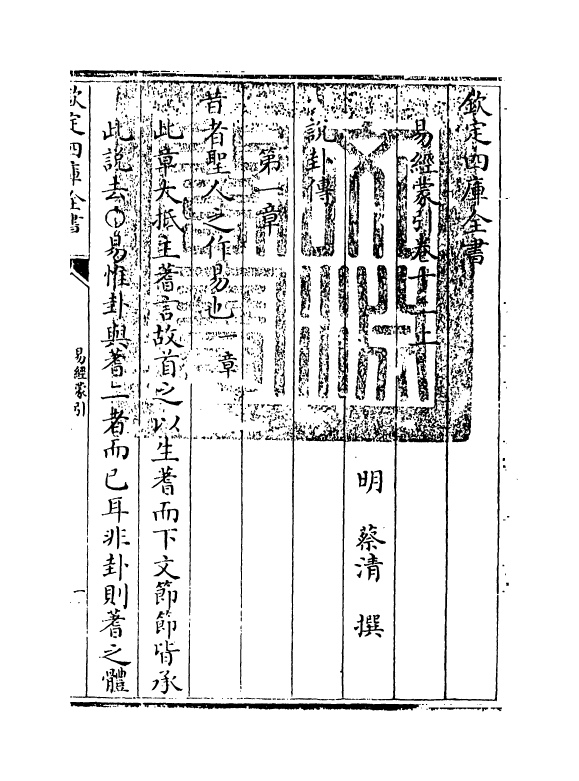 欽定四庫全書
易經蒙引卷十二上
明　蔡清　撰
說卦傳
第一章
昔者聖人之作易也一章
此章大抵主蓍言故首之以生蓍而下文節節皆承
此說去○易惟卦與蓍二者而已耳非卦則蓍之體
欽定四庫全書
易經蒙引
一